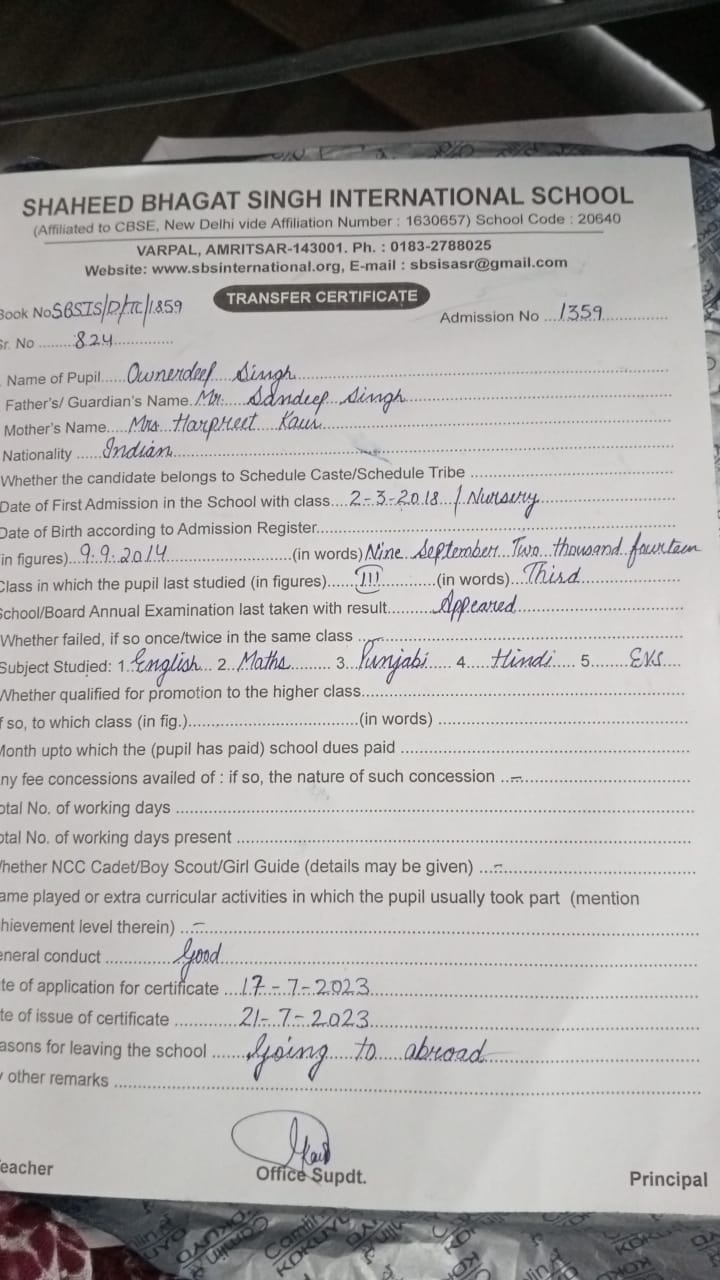 SHAHEED BHAGAT SINGH INTERNATIONAL SCHOOL
(Affiliated to CBSE, New Delhi vide Affiliation Number : 1630657) School Code : 20640
VARPAL, AMRITSAR-143001. Ph. : 0183-2788025
Website: www.sbsinternational.org, E-mail : sbsisasr@gmail.com
TRANSFER CERTIFICATE
Book No SBSIS/D/TC/1859
Admission No ...1359
Sr. No ........824
Name of Pupil..... Ownerdeep Singh
Father's/ Guardian's Name. Mr. Sandeep Singh
Mother's Name.... Mrs Harpreet Kaur
Nationality ..... Indian
Whether the candidate belongs to Schedule Caste/Schedule Tribe
Date of First Admission in the School with class.... 2-3-2018 / Nursery
Date of Birth according to Admission Register
in figures) 9.9.2014 (in words) Nine September Two thousand fourteen
Class in which the pupil last studied (in figures)...... III (in words)... Third
School/Board Annual Examination last taken with result......... Appeared
Whether failed, if so once/twice in the same class ... -
Subject Studied: 1. English 2. Maths 3. Punjabi 4. Hindi 5. EVS
Whether qualified for promotion to the higher class
f so, to which class (in fig.) (in words)
Month upto which the (pupil has paid) school dues paid
ny fee concessions availed of : if so, the nature of such concession ... -
otal No. of working days
otal No. of working days present
hether NCC Cadet/Boy Scout/Girl Guide (details may be given) ... -
ame played or extra curricular activities in which the pupil usually took part (mention
hievement level therein) ... -
eneral conduct ............ Good
te of application for certificate ... 17-7-2023
te of issue of certificate ............ 21-7-2023
asons for leaving the school ...... Going to abroad
other remarks
eacher
Office Supdt.
Principal